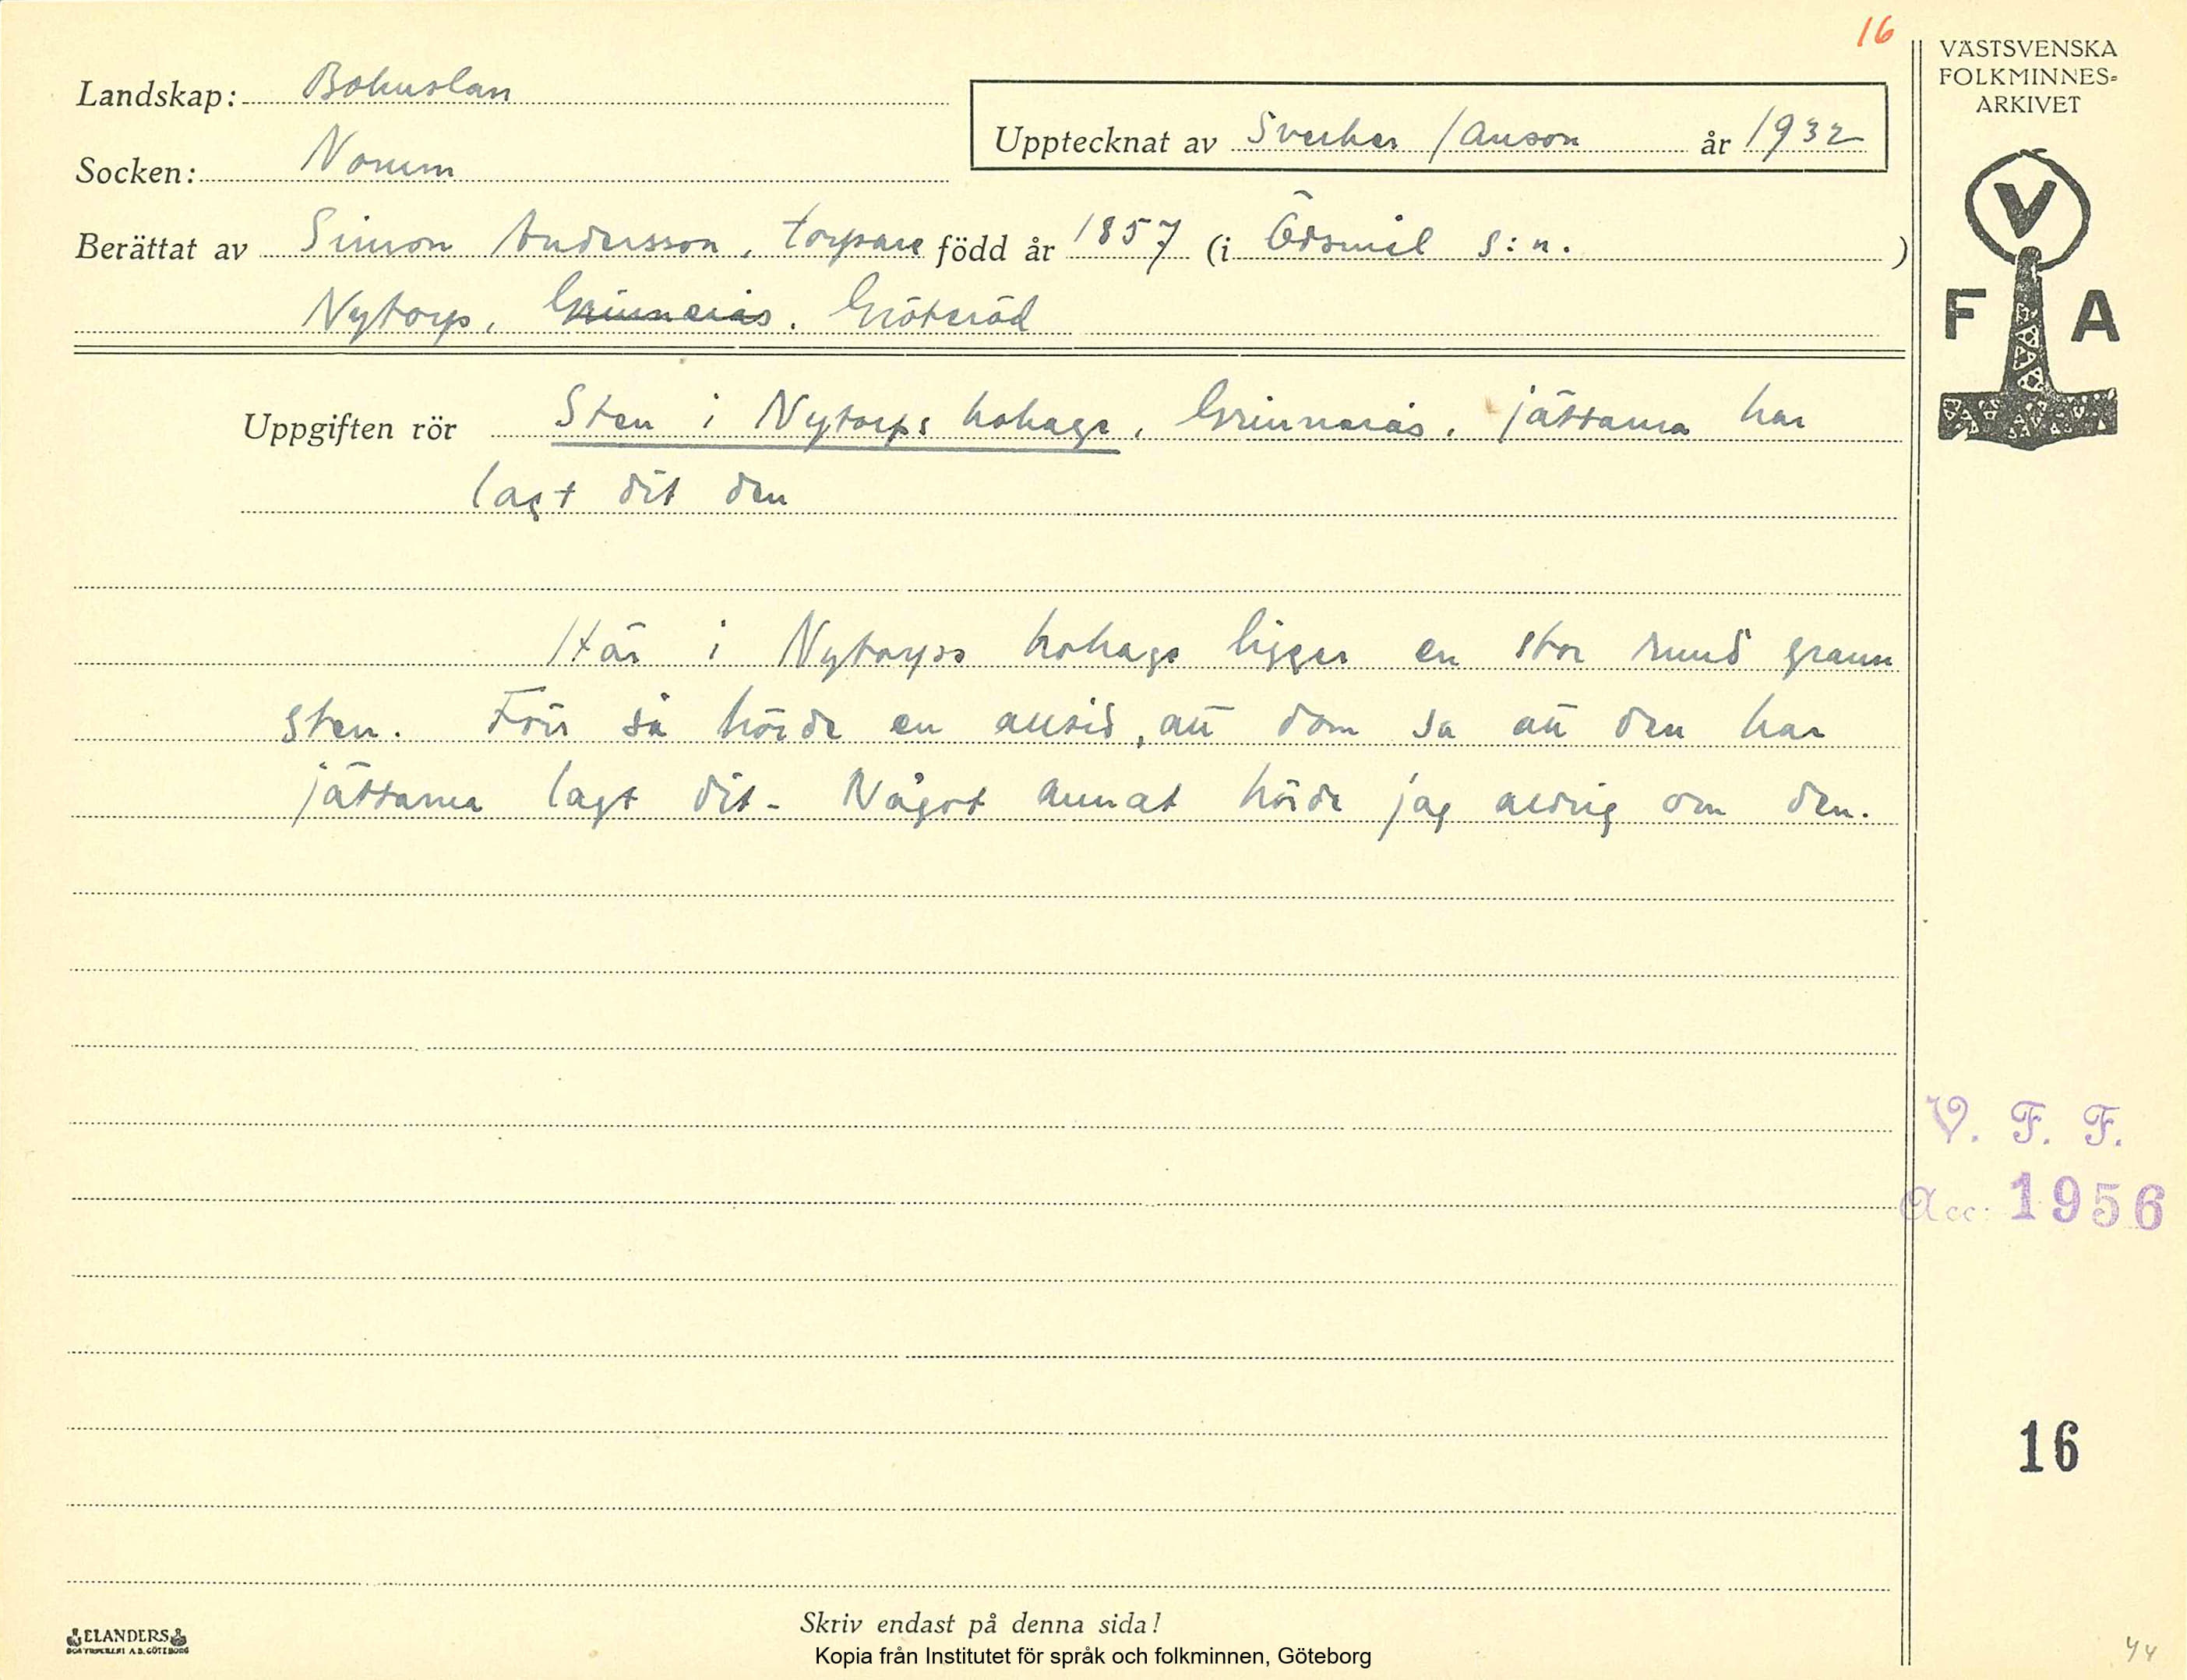 16
VÄSTSVENSKA
FOLKMINNES-
ARKIVET
V
F A
Landskap: Bohuslän
Socken: Norum
Upptecknat av Sverker Janson år 1932
Berättat av Simon Andersson, torpare född år 1857 (i Ödsmål s:n. )
Nytorp, Grinnerås. Gröteröd
Uppgiften rör Sten i Nytorps kohage, Grinnerås. jättarna har
lagt dit den
Här i Nytorps kohage ligger en stor rund grann
sten. Förr så hörde en alltid, att dom sa att den har
jättarna lagt dit. Något annat hörde jag aldrig om den.
V. F. F.
Acc: 1956
16
Skriv endast på denna sida!
ELANDERS
BOKTRYCKERI A.B. GÖTEBORG
Kopia från Institutet för språk och folkminnen, Göteborg
44